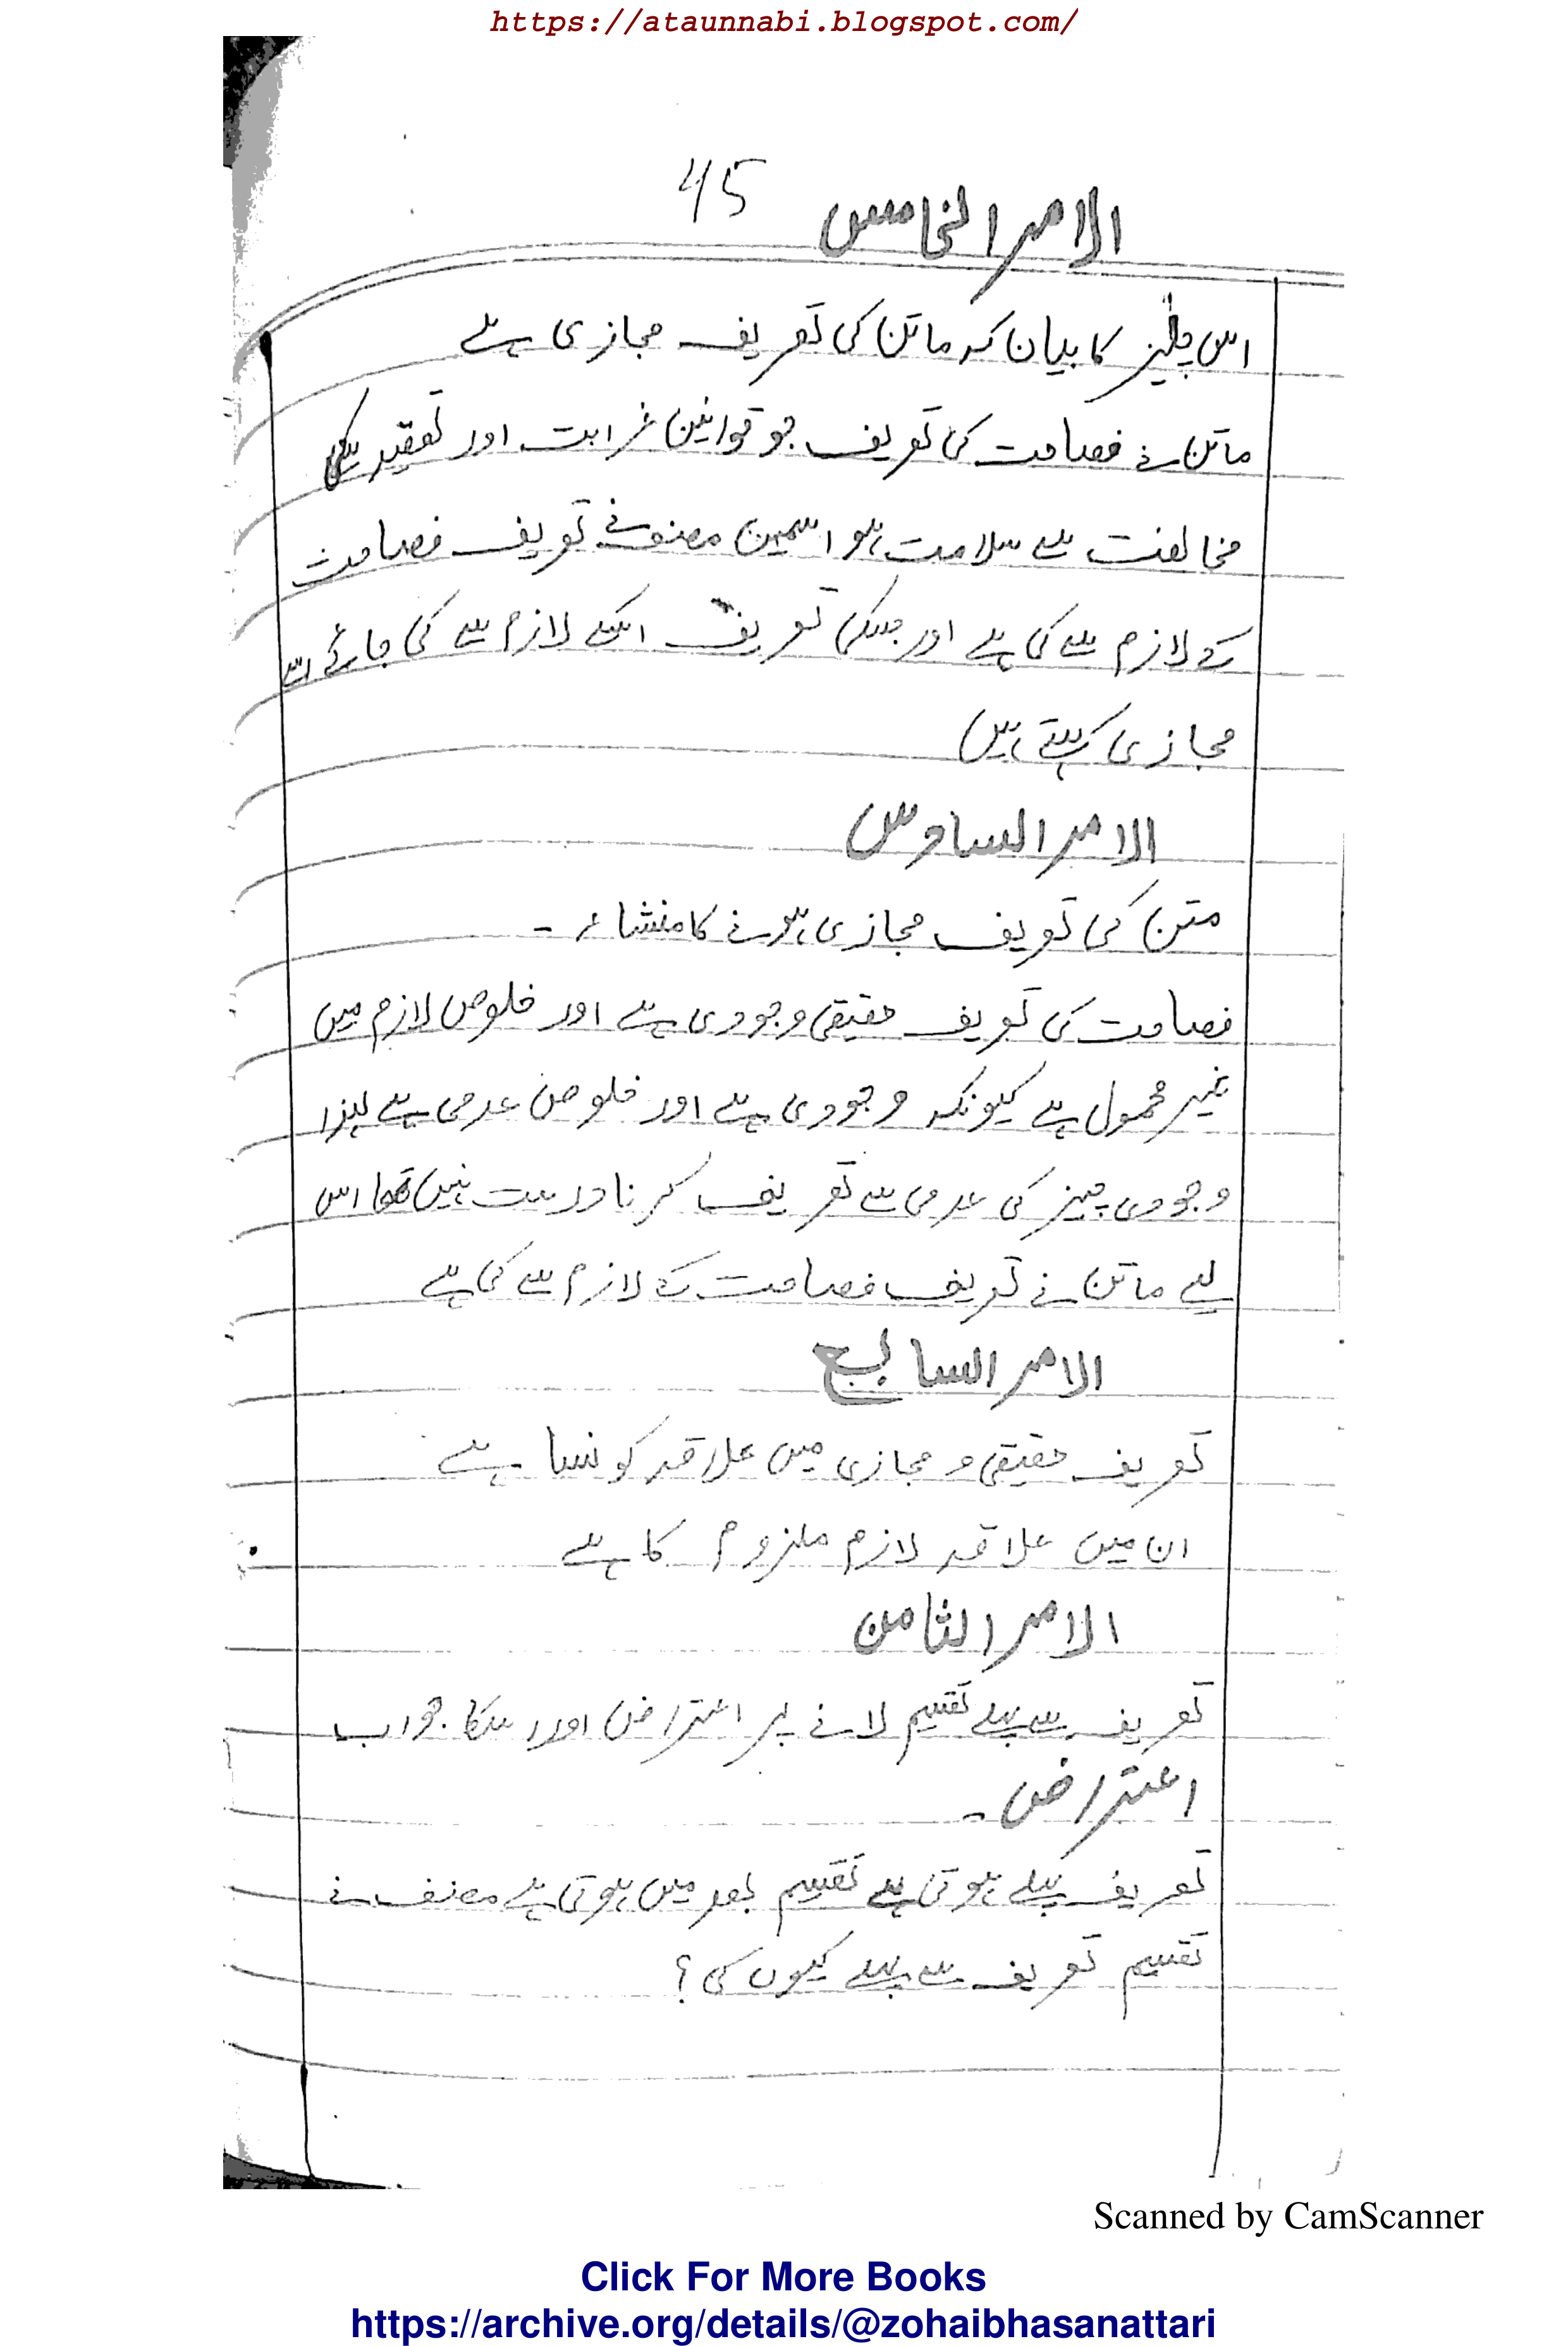 https://ataunnabi.blogspot.com/
45
الامر الخامس
اس چیز کا بیان کہ ماتن کی تعریف مجازی ہے
ماتن نے فصاحت کی تعریف جو قوانین غرابت اور تعقید کی
مخالفت سے سلامت ہو اسمیں مصنف نے تعریف فصاحت
کے لازم سے کی ہے اور جسکی تعریف اسکے لازم سے کی جائے اسے
مجازی کہتے ہیں
الامر السادس
متن کی تعریف مجازی ہونے کا منشاء ۔
فصاحت کی تعریف حقیقی وجودی ہے اور خلوص لازم میں
غیر محمول ہے کیونکہ وجودی ہے اور خلوص عدمی ہے لہذا
وجودی چیز کی عدمی سے تعریف کرنا درست نہیں تھا اس
لیے ماتن نے تعریف فصاحت کے لازم سے کی ہے
الامر السابع
تعریف حقیقی و مجازی میں علاقہ کونسا ہے
ان میں علاقہ لازم ملزوم کا ہے
الامر الثامن
تعریف سے پہلے تقسیم لانے پر اعتراض اور اسکا جواب
اعتراض ۔
تعریف پہلے ہوتی ہے تقسیم بعد میں ہوتی ہے مصنف نے
تقسیم تعریف سے پہلے کیوں کی؟
Scanned by CamScanner
Click For More Books
https://archive.org/details/@zohaibhasanattari